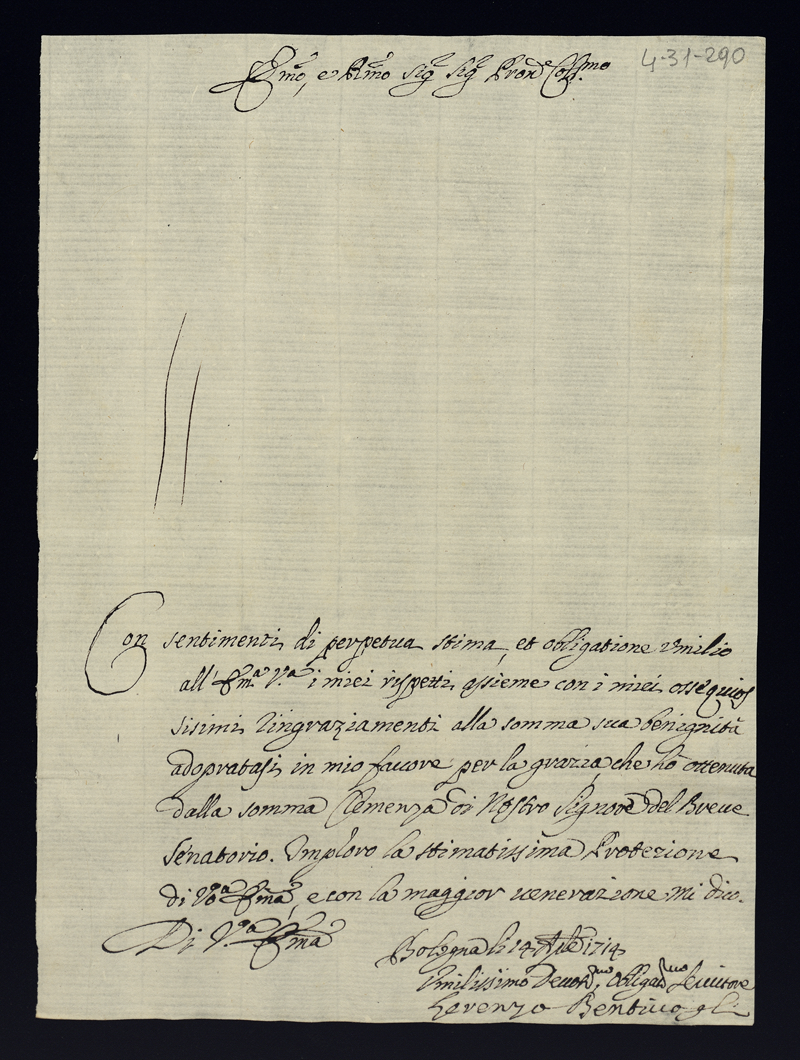 4-31-290
Emo, e Rmo Sigr Sigr Pron Collmo
Con sentimenti di perpetua stima, et obligatione umilio
all' Ema Va i miei rispetti assieme con i miei ossequios
sisimi ringraziamenti alla somma sua benignità
adopratasi in mio favore per la grazia, che hò ottenuta
dalla somma Clemenza di Nostro Signore del Breve
Senatorio. Imploro la stimatissima Protezione
di Vra Ema, e con la maggior venerazione mi dico.
Di Vra Ema
Bologna li 14 1714
Umilissimo Devotmo, Obligatmo Servitore
Lorenzo Bentivogli